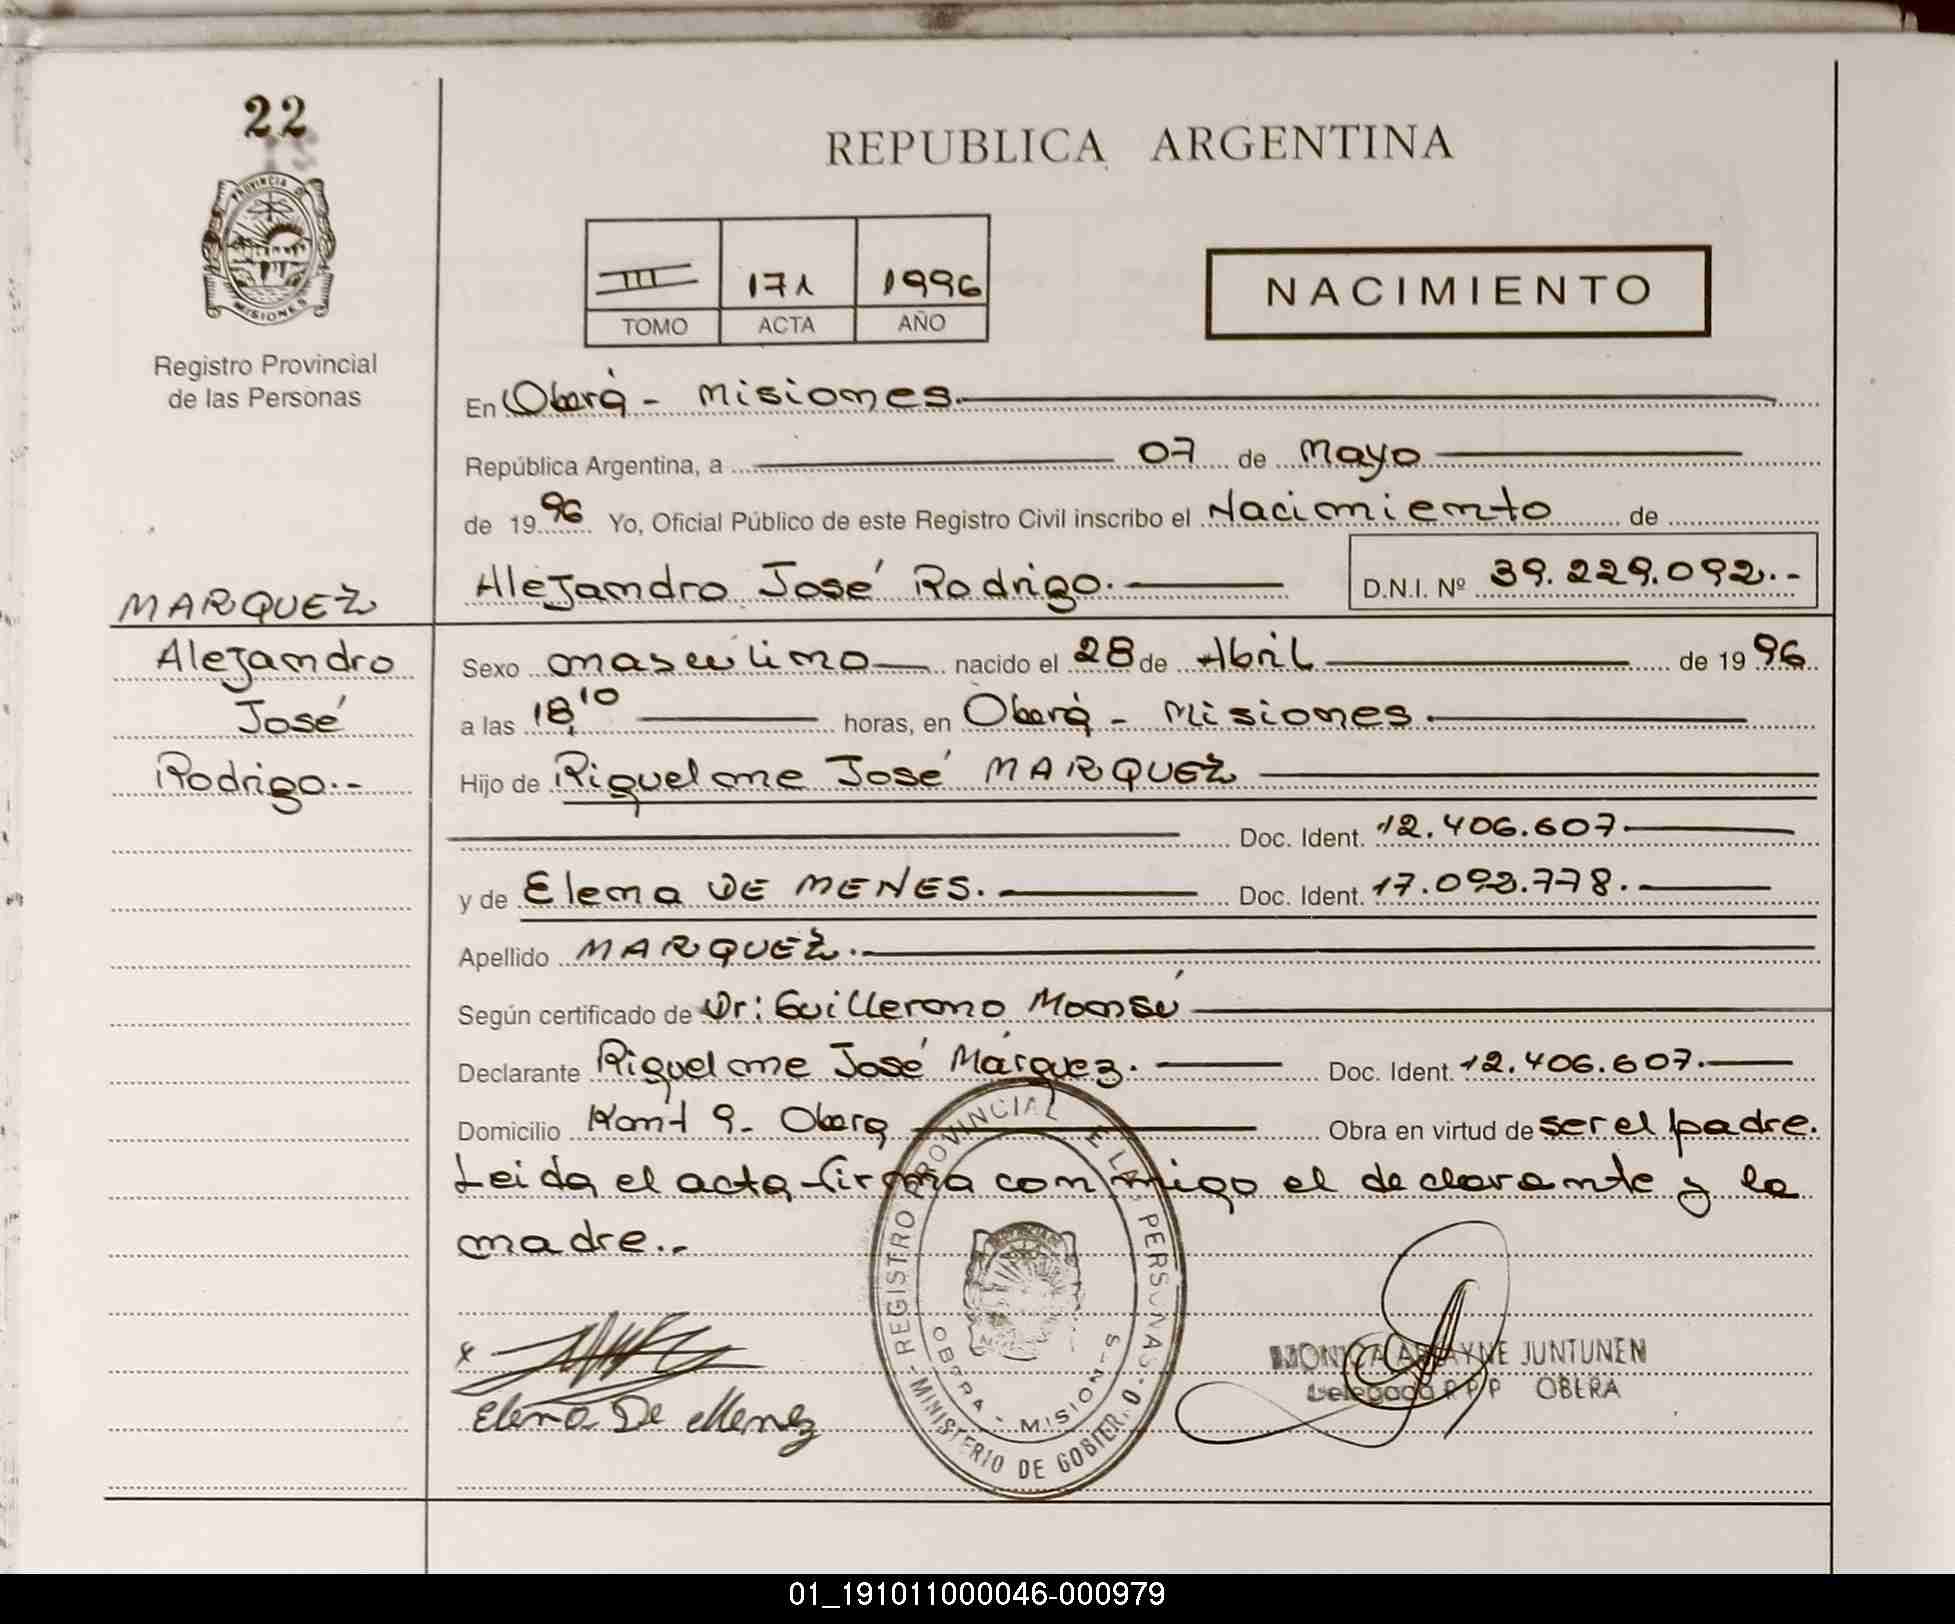 22
REPUBLICA ARGENTINA
PROVINCIA D
MISIONES
III 171 1996
TOMO ACTA AÑO
NACIMIENTO
Registro Provincial
de las Personas
En Oberá - Misiones.
República Argentina, a 07 de Mayo
de 1996 Yo, Oficial Público de este Registro Civil inscribo el Nacimiento de
Alejandro José Rodrigo. D.N.I. Nº 39.229.092.-
MARQUEZ
Alejandro
José
Rodrigo.-
Sexo masculino nacido el 28 de Abril de 1996
a las 18,10 horas, en Oberá - Misiones.
Hijo de Riquelme José MARQUEZ
Doc. Ident. 12.406.607.
y de Elena DE MENES. Doc. Ident. 17.093.778.
Apellido MARQUEZ.
Según certificado de Dr: Guillermo
Declarante Riquelme José Márquez. Doc. Ident. 12.406.607.
Domicilio 9- Oberá Obra en virtud de ser el padre.
Leida el acta firma conmigo el declarante y la
madre..
x
Elena De Menez
REGISTRO PROVINCIAL E LA PERSONAS - MINISTERIO DE GOBIER O
OBERA - MISIONES
JUNTUNEN
Delegada OBERA
01_191011000046-000979